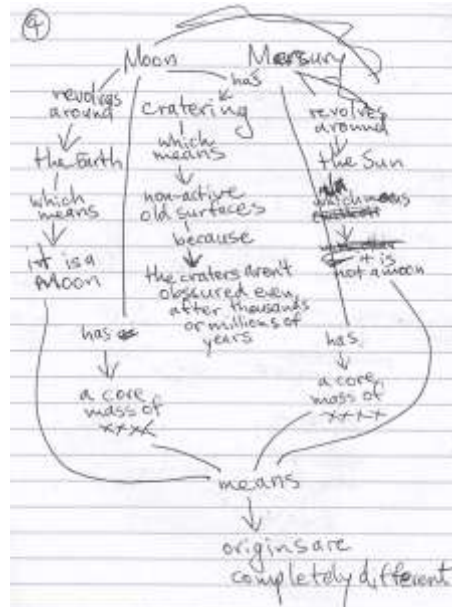 4
Moon Mersury
has
revolves
around
the Earth
which
means
it is a
Moon
cratering
which
means
non-active
old surfaces
because
the craters aren't
obssured even
after thousands
or millions of
years
revolves
around
the Sun
which means
it is
not a moon
has
a core
mass of
xxxx
has
a core
mass of
xxxx
means
origins are
completely different